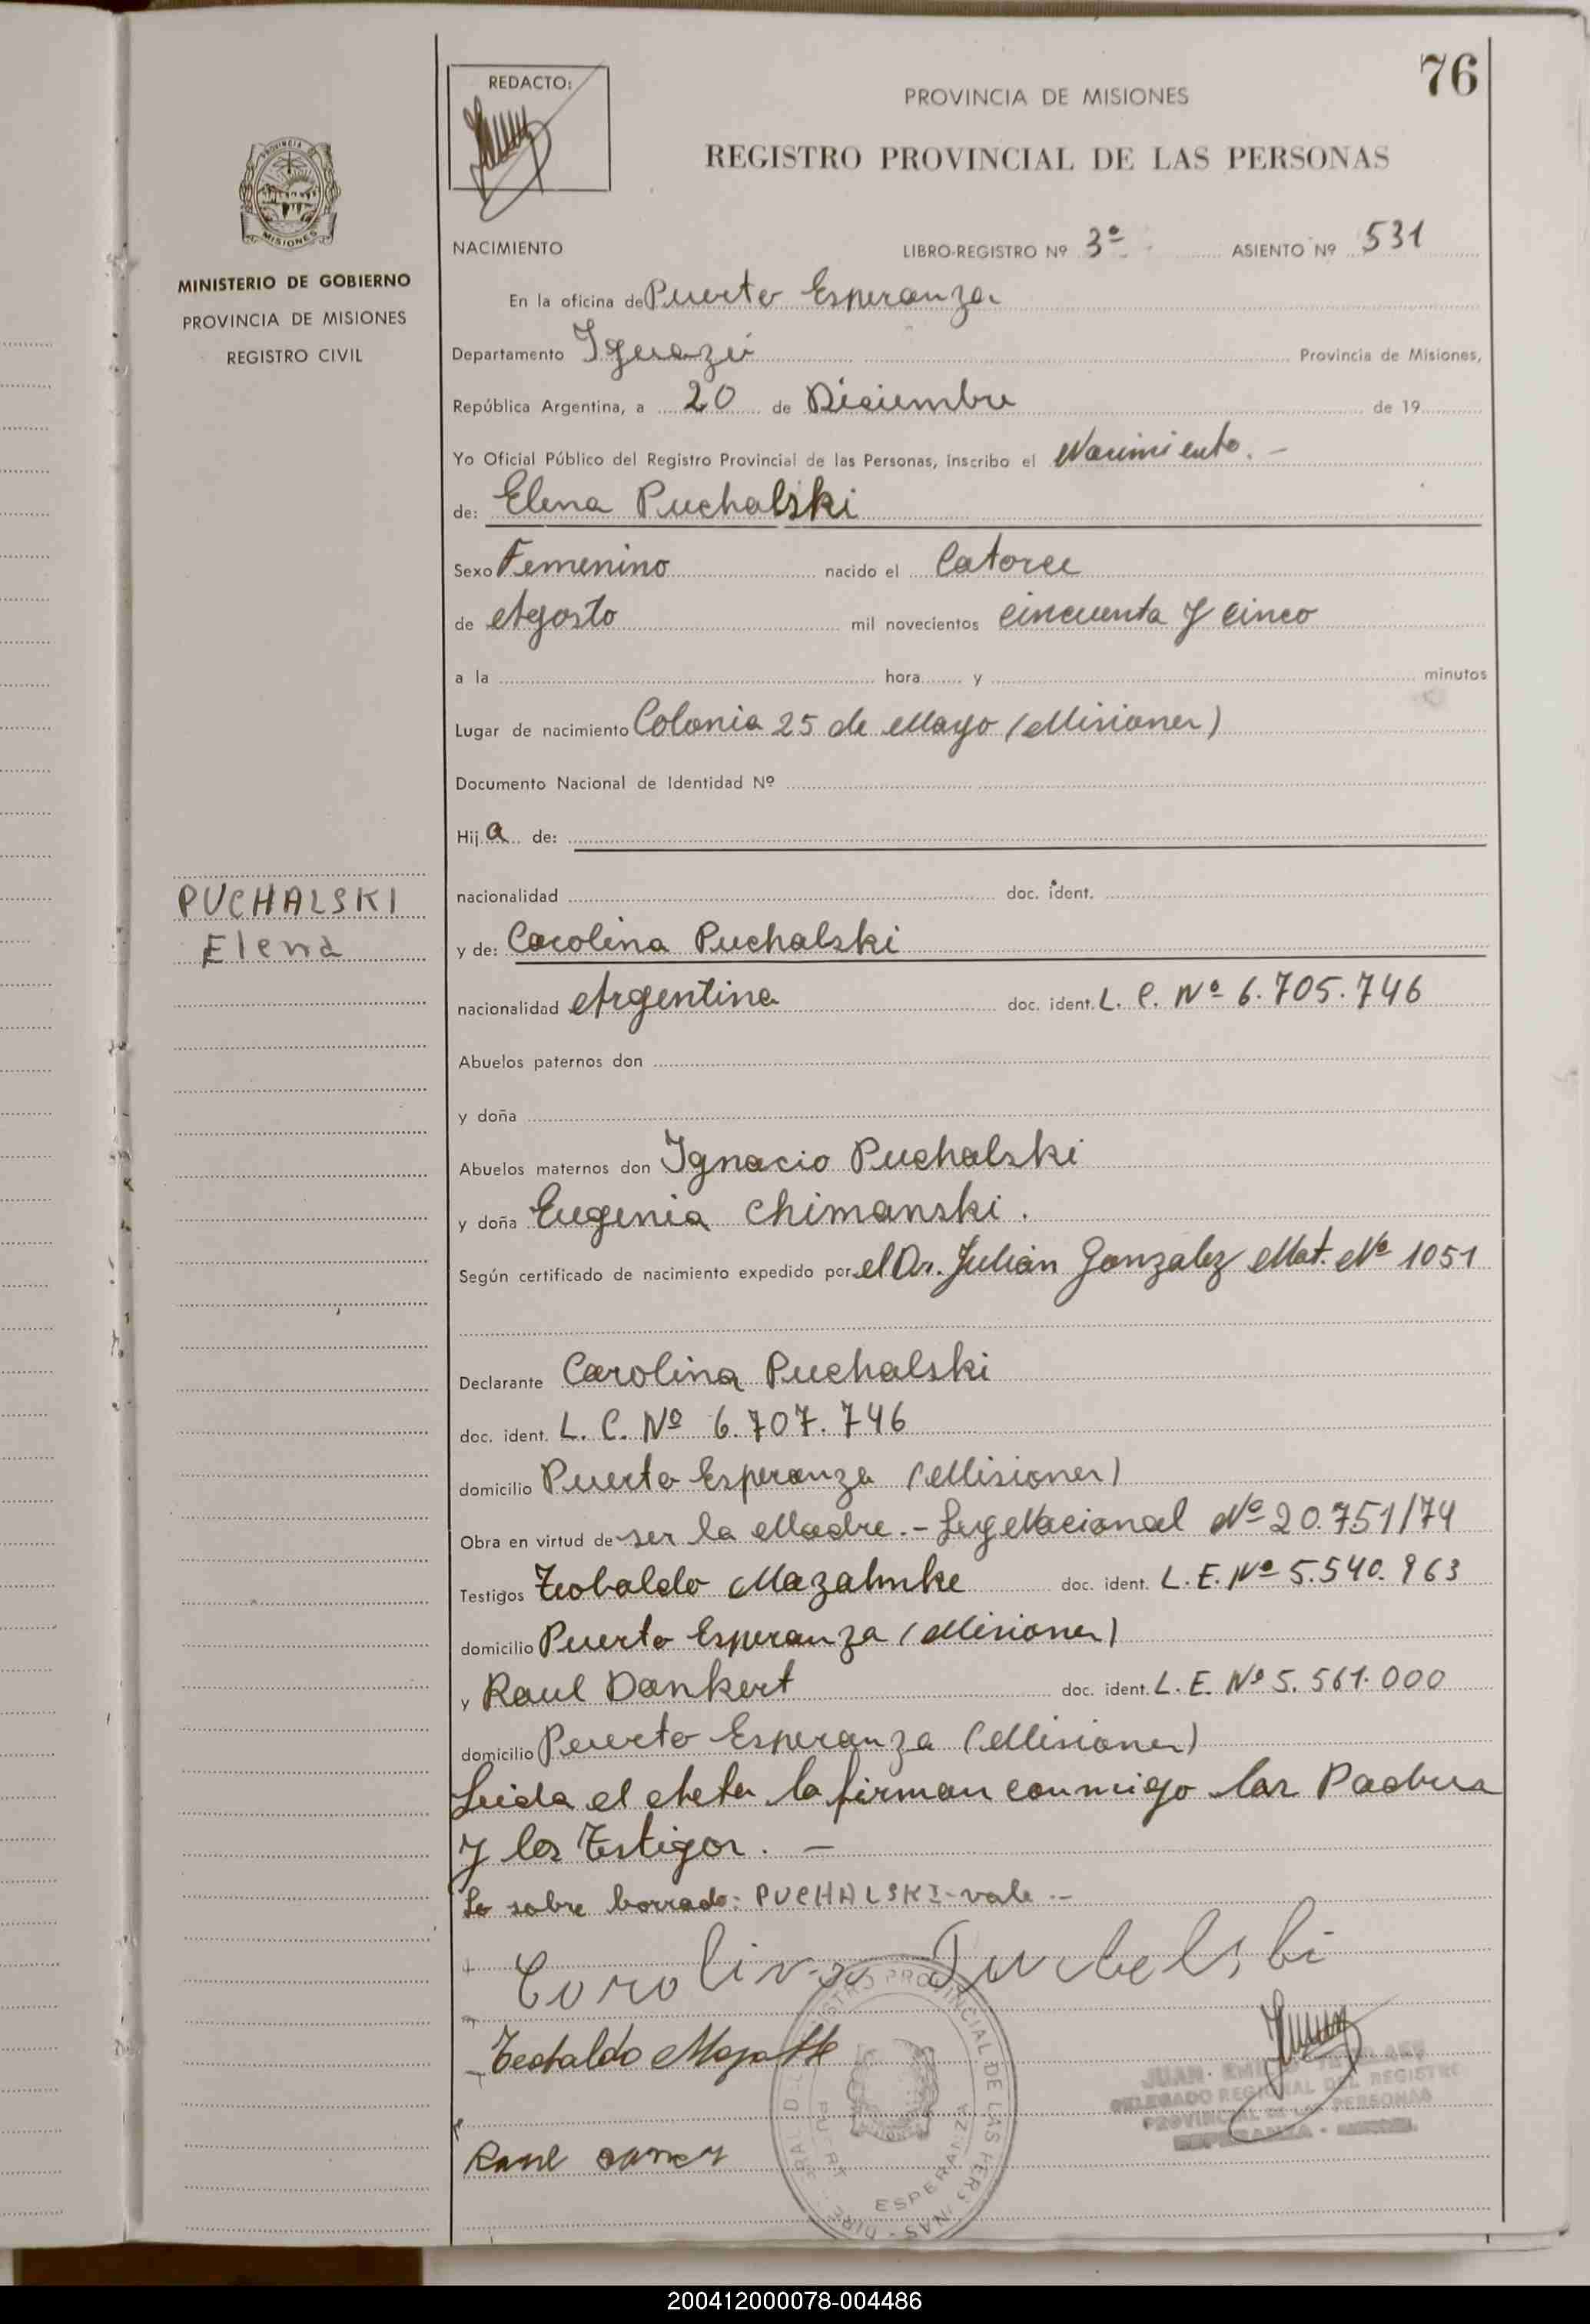 76
REDACTO:
PROVINCIA DE MISIONES
REGISTRO PROVINCIAL DE LAS PERSONAS
PROVINCIA DE
MISIONES
MINISTERIO DE GOBIERNO
PROVINCIA DE MISIONES
REGISTRO CIVIL
NACIMIENTO LIBRO-REGISTRO Nº 3º ASIENTO Nº 531
En la oficina de Puerto Esperanza
Departamento Iguazú Provincia de Misiones,
República Argentina, a 20 de Diciembre de 19
Yo Oficial Público del Registro Provincial de las Personas, inscribo el Nacimiento.-
de: Elena Puchalski
Sexo Femenino nacido el Catorce
de Agosto mil novecientos cincuenta y cinco
a la hora y minutos
Lugar de nacimiento Colonia 25 de Mayo (Misiones)
Documento Nacional de Identidad Nº
Hija de:
nacionalidad doc. ident.
PUCHALSKI
Elena
y de: Carolina Puchalski
nacionalidad Argentina doc. ident. L. C. Nº 6.705.746
Abuelos paternos don
y doña
Abuelos maternos don Ignacio Puchalski
y doña Eugenia Chimanski.
Según certificado de nacimiento expedido por el Dr. Julián Gonzalez Mat. Nº 1051
Declarante Carolina Puchalski
doc. ident. L. C. Nº 6.707.746
domicilio Puerto Esperanza (Misiones)
Obra en virtud de ser la Madre.- Ley Nacional Nº 20.751/74
Testigos Teobaldo Mazahnke doc. ident. L. E. Nº 5.540.963
domicilio Puerto Esperanza (Misiones)
y Raul Dankert doc. ident. L. E. Nº 5.561.000
domicilio Puerto Esperanza (Misiones)
Leida el Acta la firman conmigo los Padres
y los Testigos.-
Lo sobre borrado: PUCHALSKI-vale.-
Carolina Puchalski
Teobaldo
Raul
REGISTRO PROVINCIAL DE LAS PERSONAS
ESPERANZA
JUAN EMILIO
DELEGADO REGIONAL DEL REGISTRO
PROVINCIAL DE LAS PERSONAS
ESPERANZA -
200412000078-004486